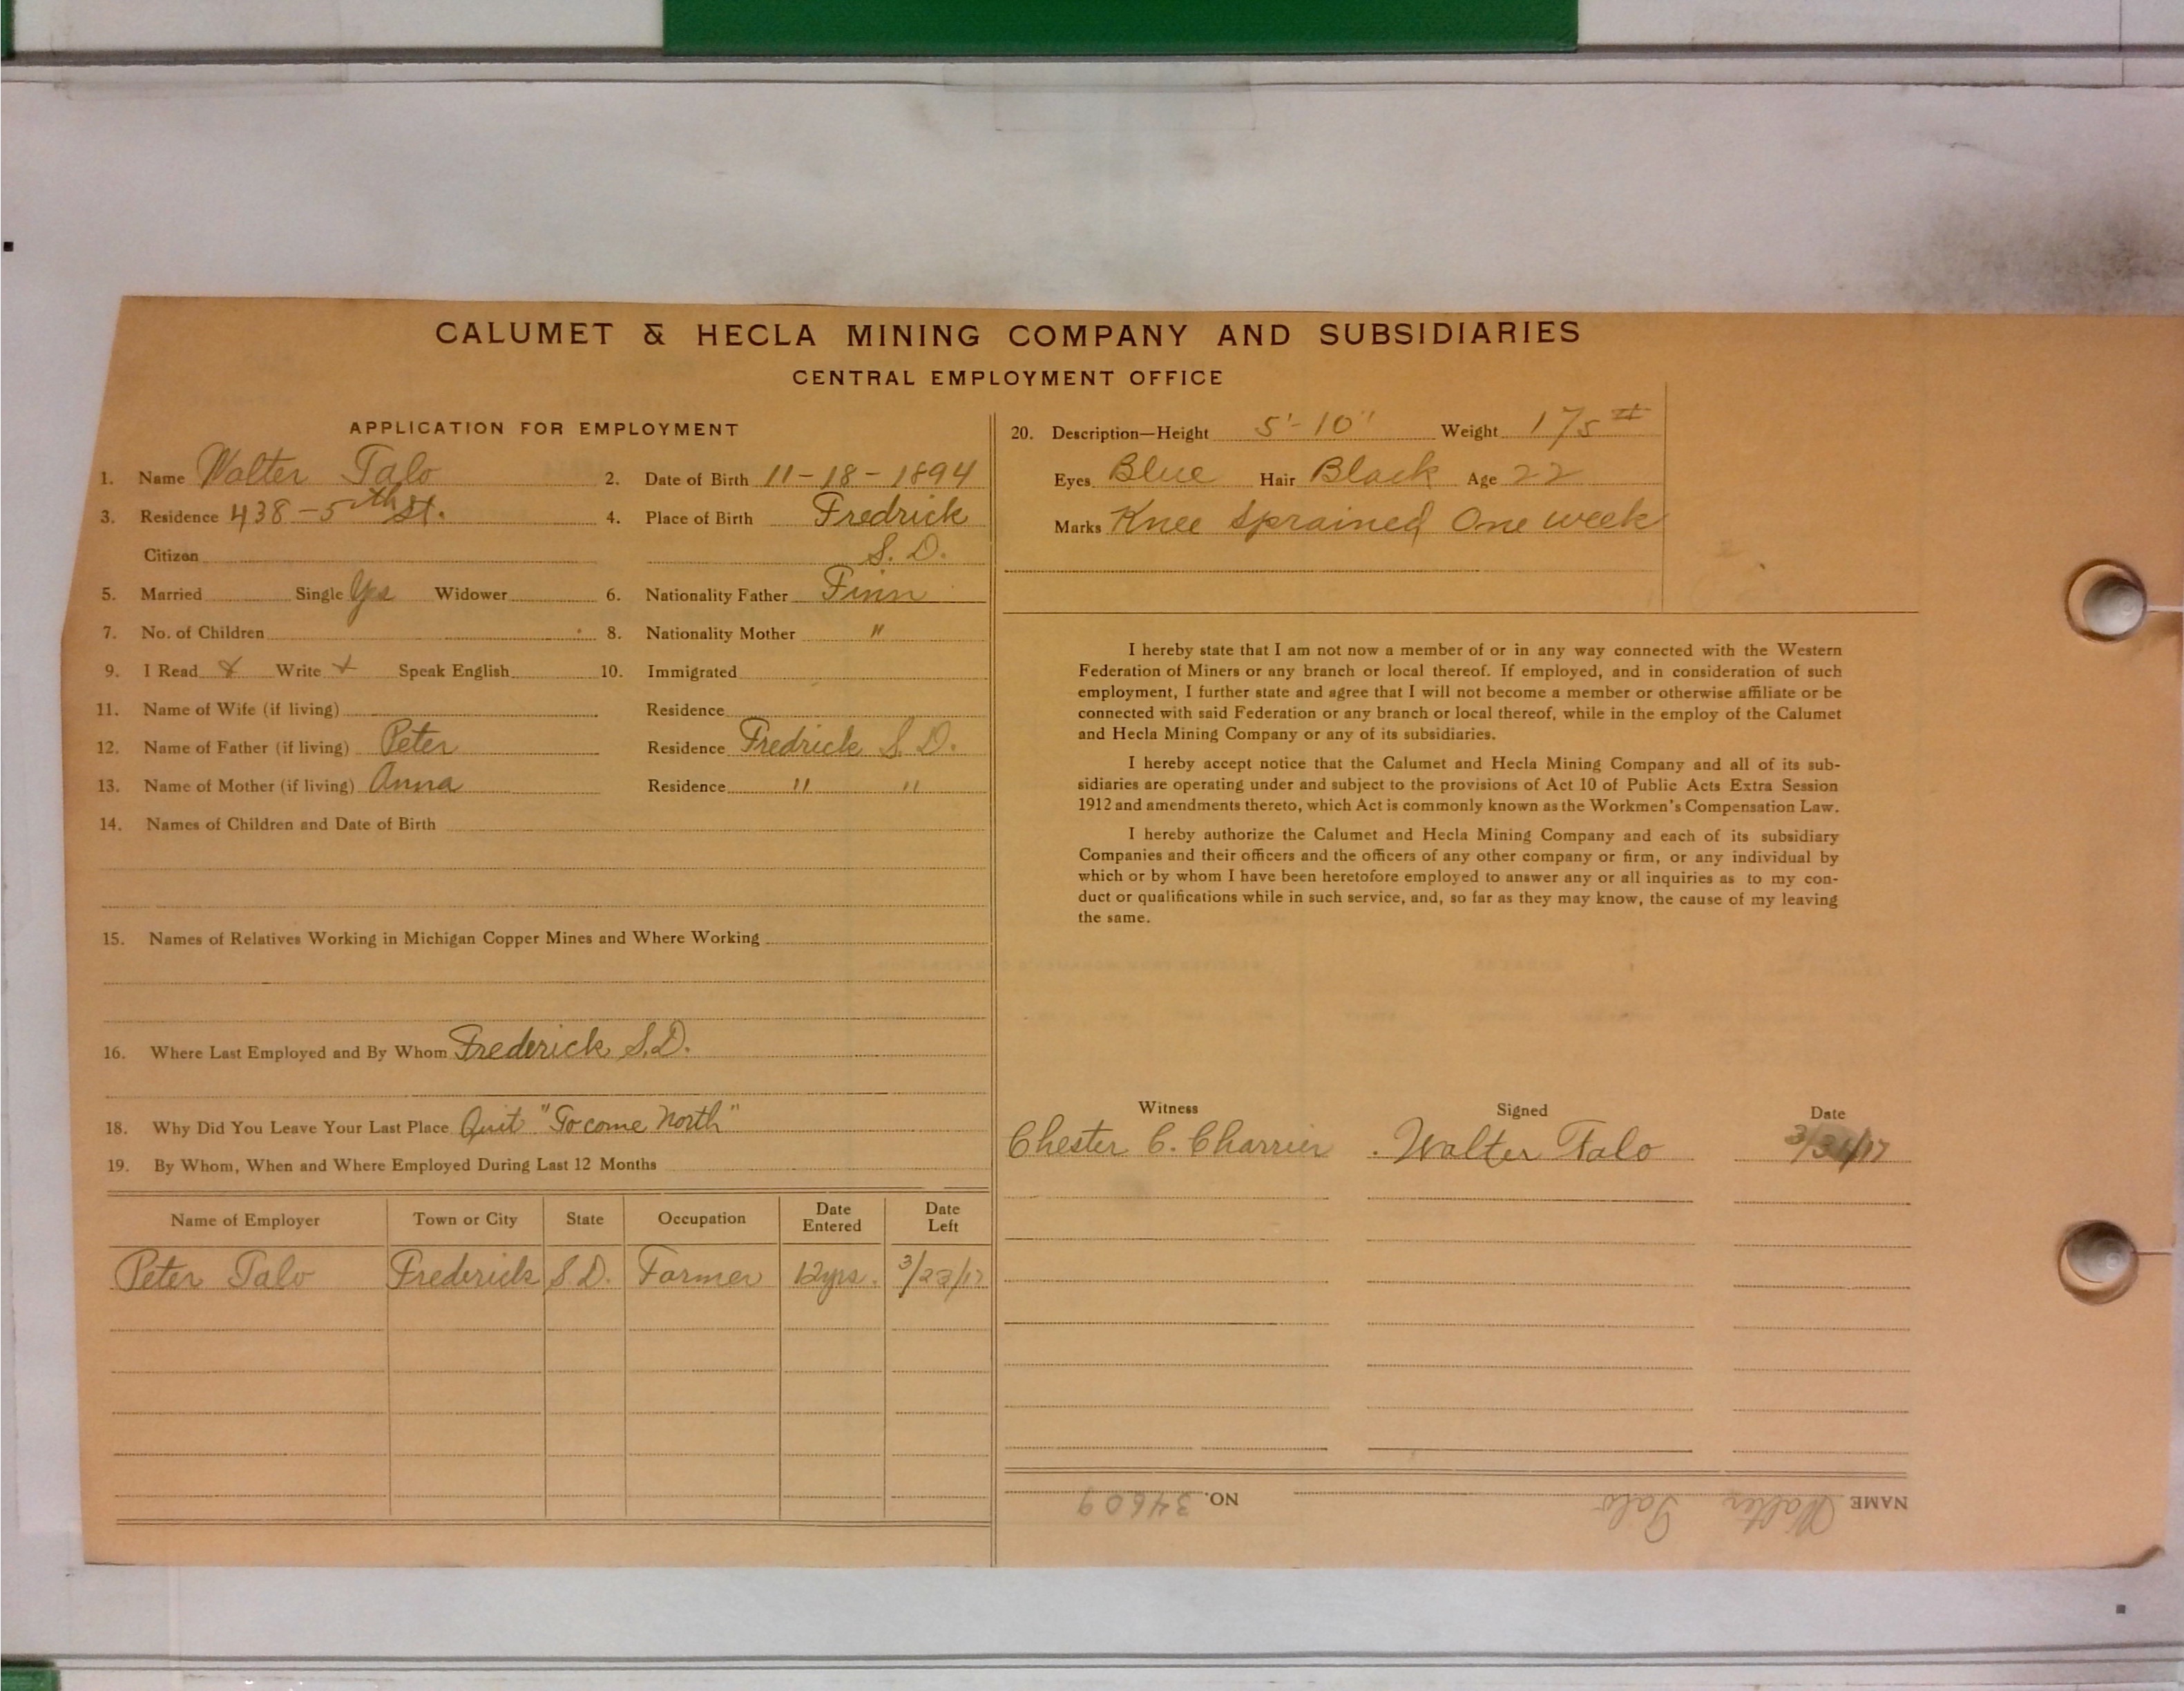 CALUMET & HECLA MINING COMPANY AND SUBSIDIARIES
CENTRAL EMPLOYMENT OFFICE
APPLICATION FOR EMPLOYMENT
1. Name Walter Talo
2. Date of Birth 11-18-1894
3. Residence 438-5th St.
4. Place of Birth Fredrick
Citizen
S. D.
5. Married Single Yes Widower
6. Nationality Father Finn
7. No. of Children
8. Nationality Mother "
9. I Read x Write x Speak English
10. Immigrated
11. Name of Wife (if living)
Residence
12. Name of Father (if living) Peter
Residence Fredrick S. D.
13. Name of Mother (if living) Anna
Residence " "
14. Names of Children and Date of Birth
15. Names of Relatives Working in Michigan Copper Mines and Where Working
16. Where Last Employed and By Whom Frederick S.D.
18. Why Did You Leave Your Last Place Quit "To come North"
19. By Whom, When and Where Employed During Last 12 Months
Name of Employer Town or City State Occupation Date Entered Date Left
Peter Talo Frederick S.D. Farmer 12yrs. 3/23/17
20. Description—Height 5'-10" Weight 175 #
Eyes Blue Hair Black Age 22
Marks Knee sprained One week
I hereby state that I am not now a member of or in any way connected with the Western
Federation of Miners or any branch or local thereof. If employed, and in consideration of such
employment, I further state and agree that I will not become a member or otherwise affiliate or be
connected with said Federation or any branch or local thereof, while in the employ of the Calumet
and Hecla Mining Company or any of its subsidiaries.
I hereby accept notice that the Calumet and Hecla Mining Company and all of its sub-
sidiaries are operating under and subject to the provisions of Act 10 of Public Acts Extra Session
1912 and amendments thereto, which Act is commonly known as the Workmen's Compensation Law.
I hereby authorize the Calumet and Hecla Mining Company and each of its subsidiary
Companies and their officers and the officers of any other company or firm, or any individual by
which or by whom I have been heretofore employed to answer any or all inquiries as to my con-
duct or qualifications while in such service, and, so far as they may know, the cause of my leaving
the same.
Witness Signed Date
Chester C. Charrier Walter Talo 3/31/17
NAME Walter Talo NO. 34609